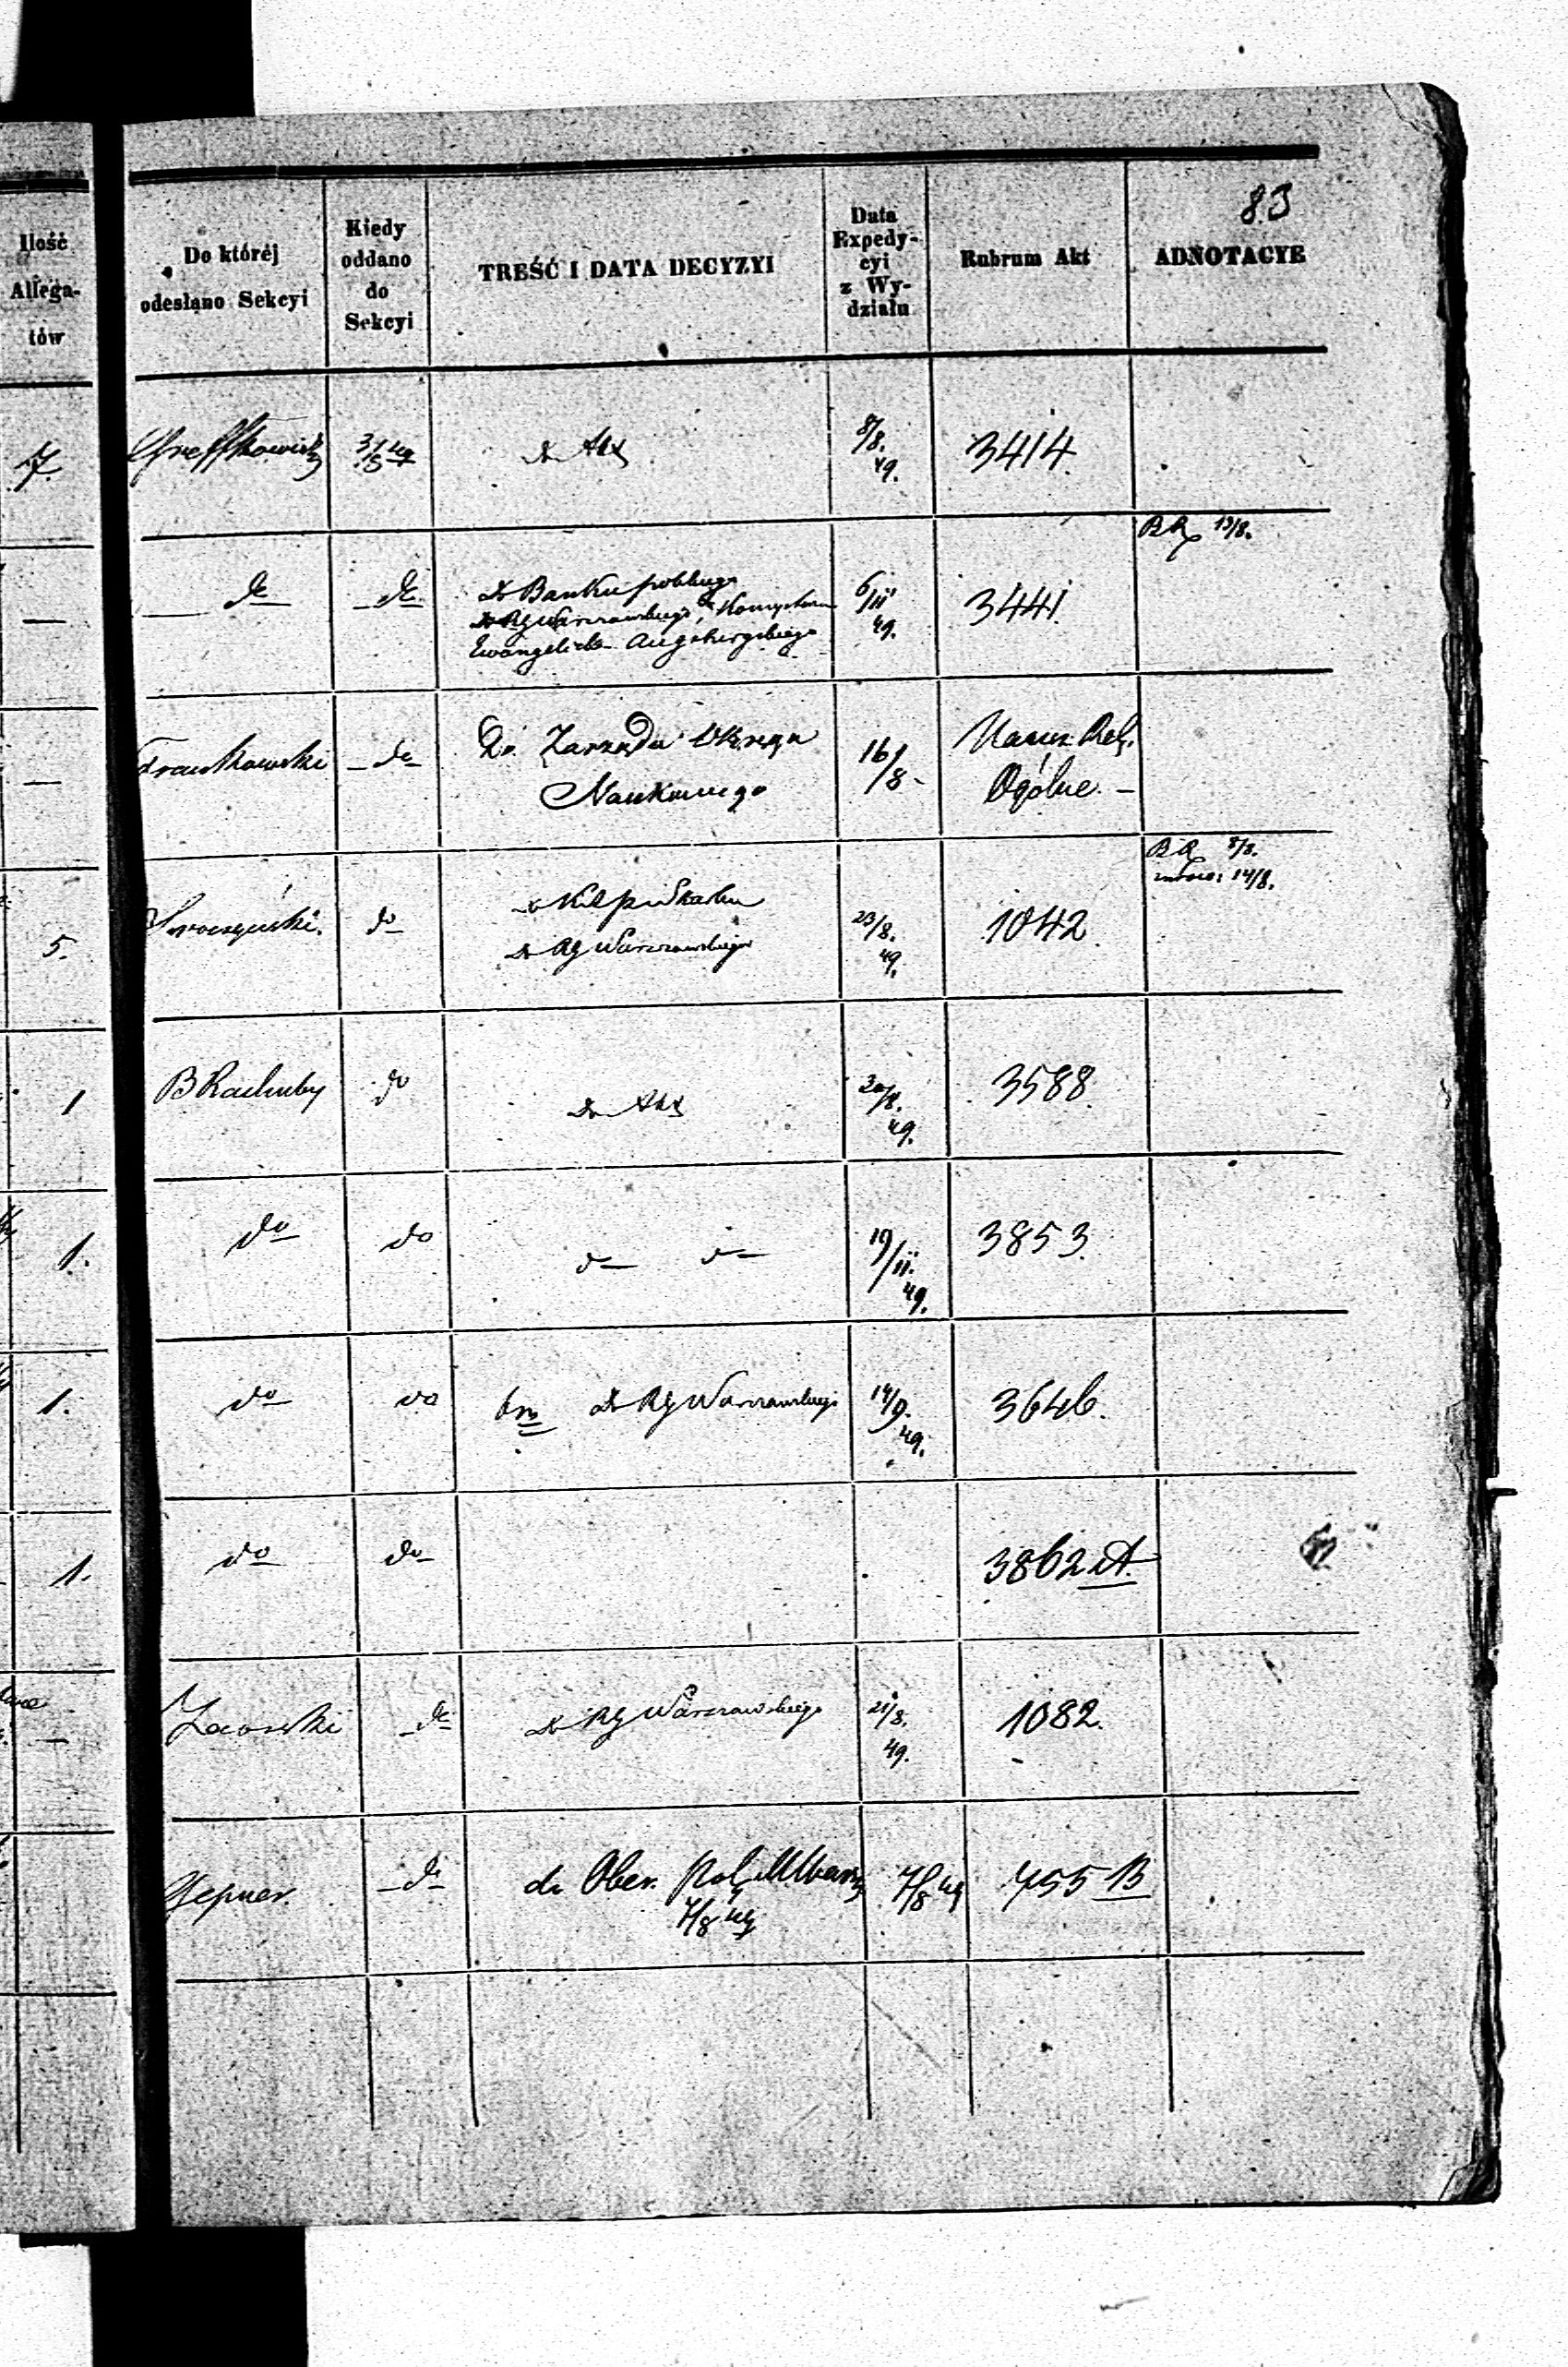 83
Ilość
Allega-
tów
Do któréj
odesłano Sekcyi
Kiedy
oddano
do
Sekcyi
TREŚĆ I DATA DECYZYI
Data
Expedy-
cyi
z Wy-
działu
Rubrum Akt
ADNOTACYE
7.
do Akt
8/8.
49.
3414.
—
do
do
BR 13/8.
do Banku polskiego
do RG Warszawskiego,
Ewangelicko-Augsburgskiego
6/11
49.
3441.
—
do
Do Zarządu Okręgu
Naukowego
16/8-
Ogólne. –
5.
do
do RG Warszawskiego
23/8.
49.
1042.
BR 8/8.
14/8.
1
B Rachuby
do
do Akt
30/8.
49.
3588.
1.
do
do
do do
19/11.
49.
3853.
1.
do
do
do RG Warszawskiego
14/9.
49.
3646.
1.
do
do
3862 A.
—
do
do RG Warszawskiego
21/8.
49.
1082.
Hepner.
do
do Ober.
7/8 49
7/8 49
755 B